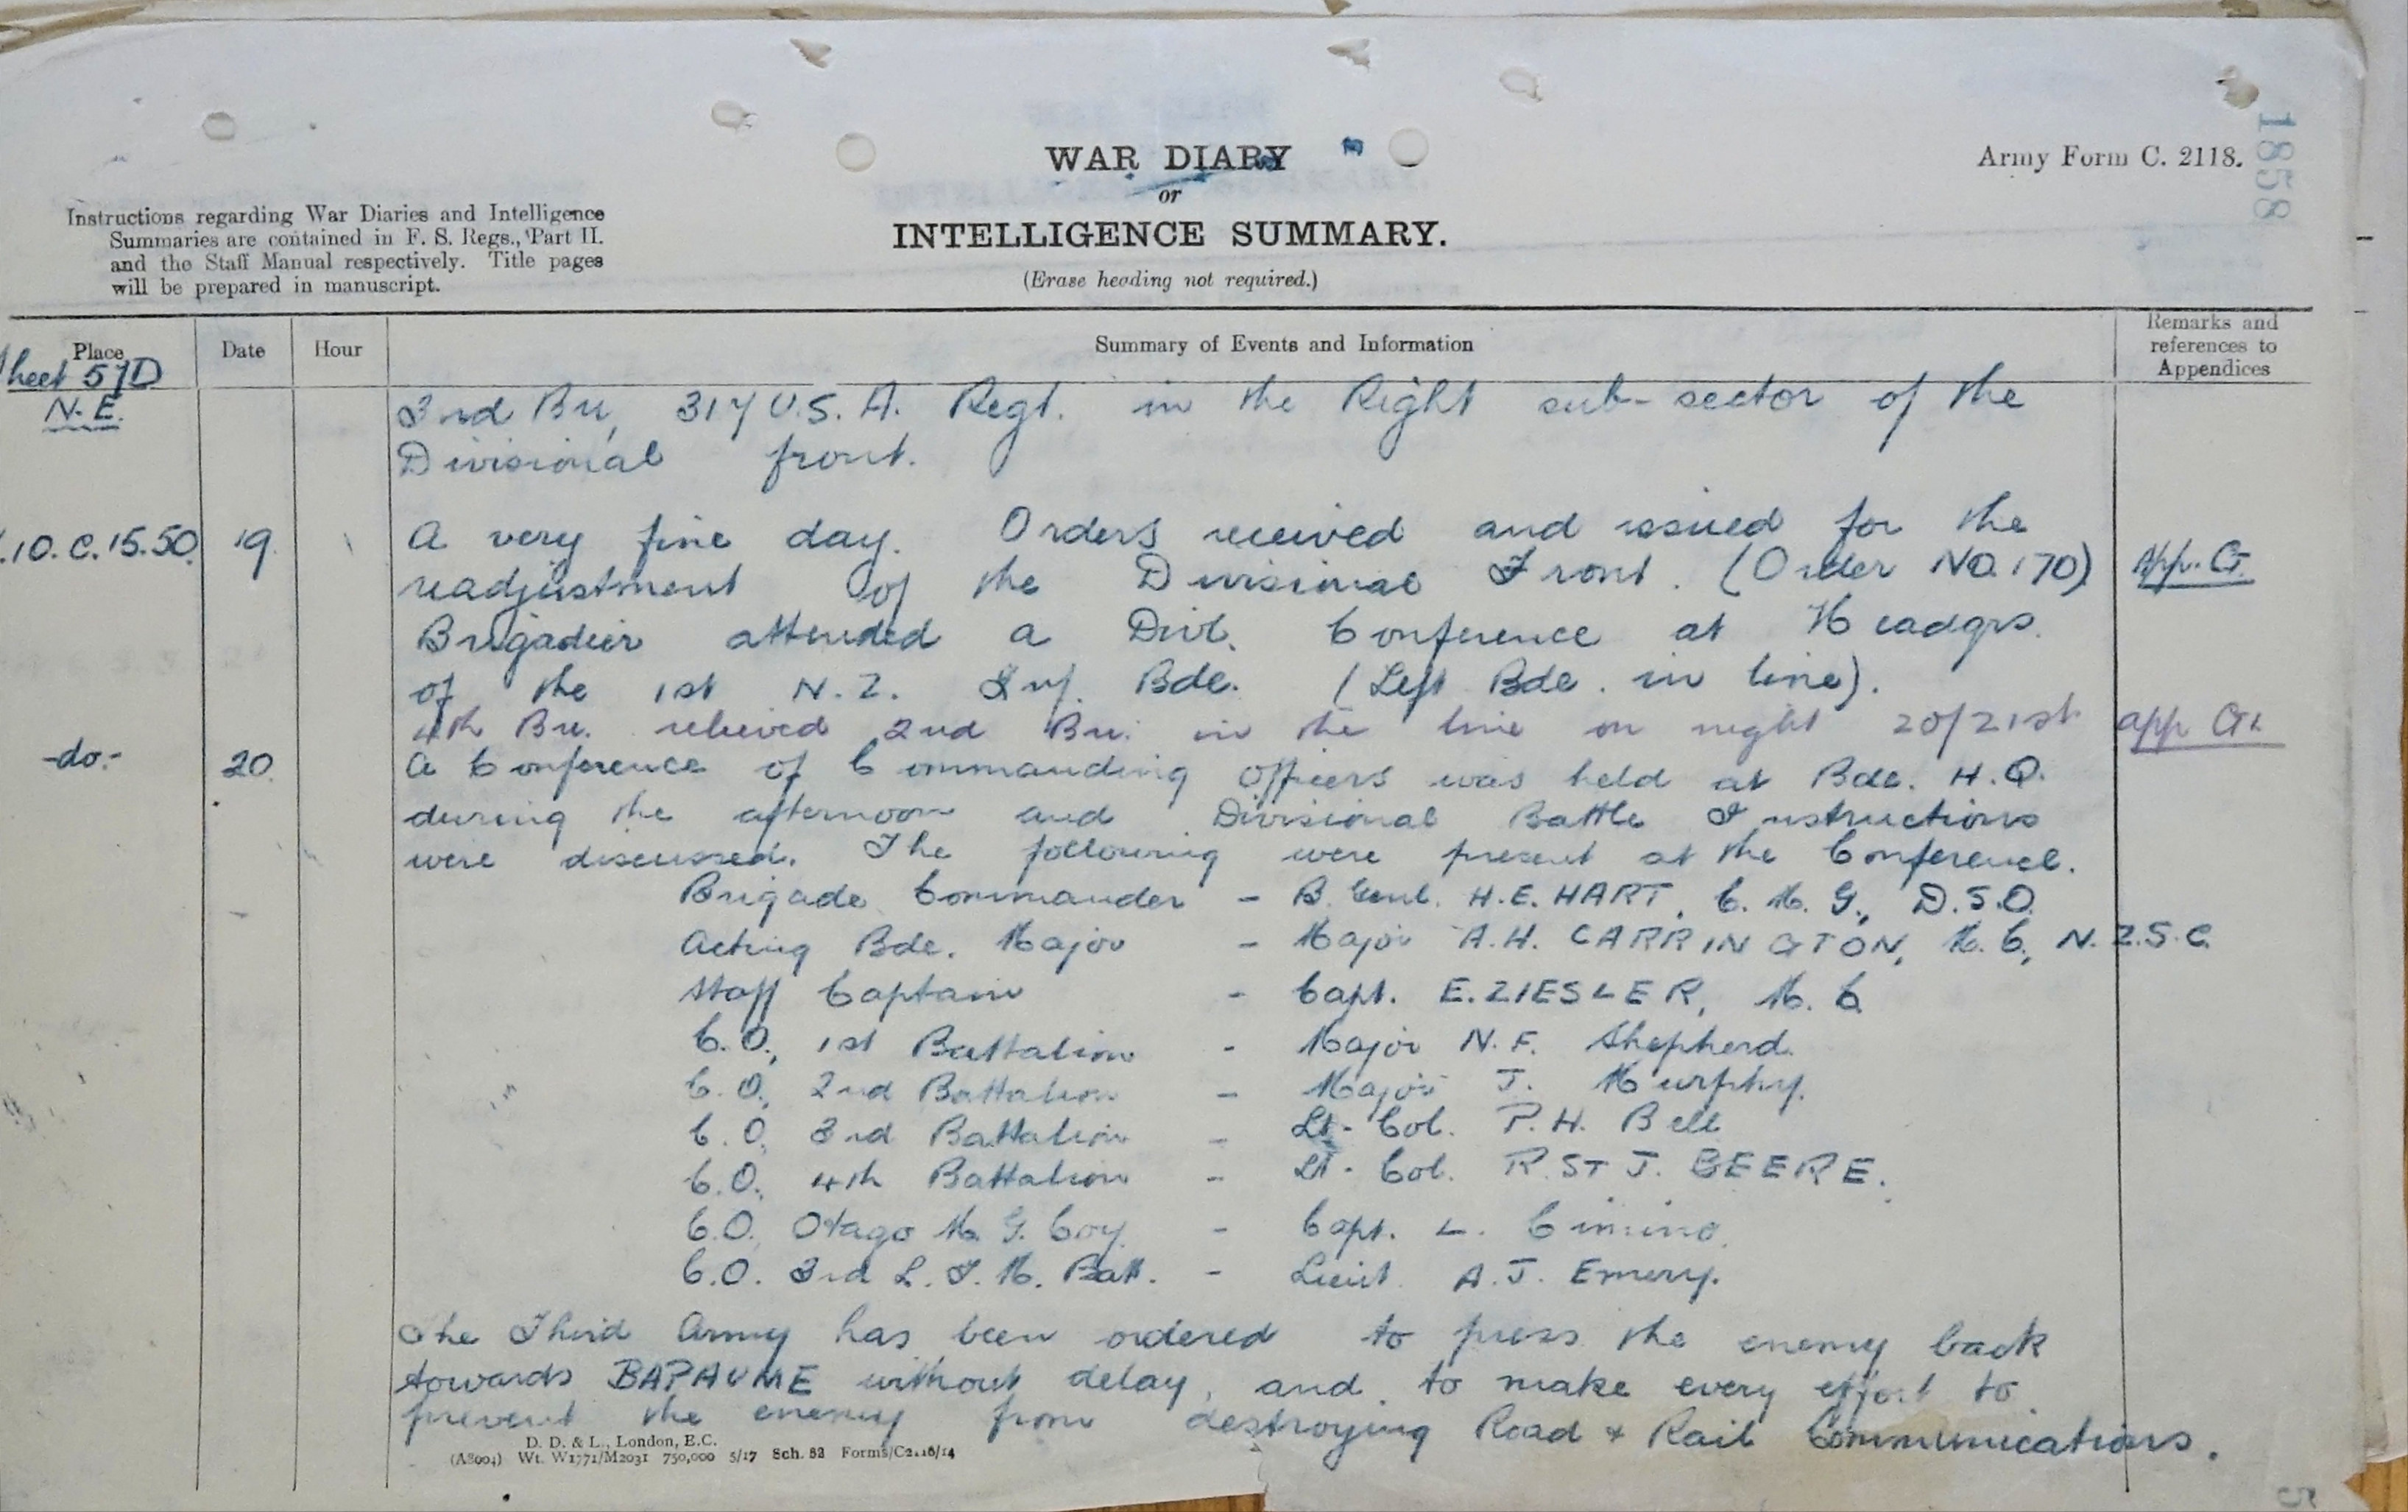 WAR DIARY
or
INTELLIGENCE SUMMARY.
(Erase heading not required.)
Army Form C. 2118.
1858
Instructions regarding War Diaries and Intelligence
Summaries are contained in F. S. Regs., Part II.
and the Staff Manual respectively. Title pages
will be prepared in manuscript.
Place
Date
Hour
Summary of Events and Information
Remarks and
references to
Appendices
heet 57D
N.E.
3rd Bn, 317 U.S.A. Regt. in the Right sub-sector of the
Divisional front.
.10.C.15.50. 19. A very fine day. Orders received and issued for the
readjustment of the Divisional Front. (Order NO.170) App. G.
Brigadier attended a Divl. Conference at Headqrs.
of the 1st N.Z. Inf. Bde. (Left Bde. in line).
4th Bn. relieved 2nd Bn. in the line on night 20/21st app G1
-do- 20. A Conference of Commanding Officers was held at Bde. H.Q.
during the afternoon and Divisional Battle Instructions
were discussed. The following were present at the Conference.
Brigade Commander - B. Genl. H.E. HART, C.M.G., D.S.O.
Acting Bde. Major - Major A.H. CARRINGTON, M.C., N.Z.S.C.
Staff Captain - Capt. E. ZIESLER, M.C
C.O., 1st Battalion - Major N.F. Shepherd.
C.O., 2nd Battalion - Major J. Murphy.
C.O. 3rd Battalion - Lt-Col. P.H. Bell
C.O., 4th Battalion - Lt-Col. R. ST J. BEERE.
C.O. Otago M.G. Coy. - Capt. L. Cimino.
C.O. 3rd L.T.M. Batt. - Lieut. A.J. Emery.
The Third Army has been ordered to press the enemy back
towards BAPAUME without delay, and to make every effort to
prevent the enemy from destroying Road & Rail Communications.
D. D. & L., London, E.C.
(A8004) Wt. W1771/M2031 750,000 5/17 Sch. 82 Forms/C2118/14
5